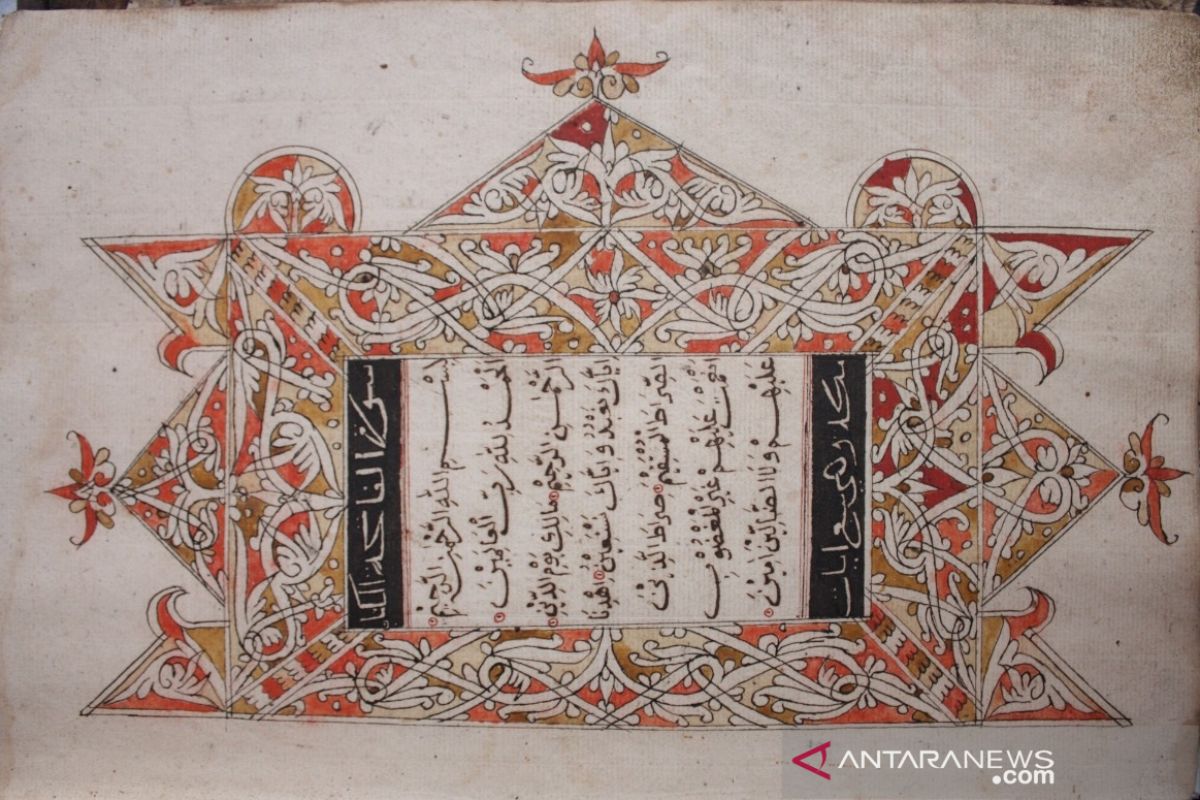 سورة الفاتحة الكتاب
بِسْمِ اللَّهِ الرَّحْمٰنِ الرَّحِيْمِ
اَلْحَمْدُ لِلّٰهِ رَبِّ الْعَالَمِيْنَ
الرَّحْمٰنِ الرَّحِيْمِ مَالِكِ يَوْمِ الدِّيْنِ
اِيَّاكَ نَعْبُدُ وَاِيَّاكَ نَسْتَعِيْنُ اِهْدِنَا
الصِّرَاطَ الْمُسْتَقِيْمَ صِرَاطَ الَّذِيْنَ
اَنْعَمْتَ عَلَيْهِمْ غَيْرِ الْمَغْضُوْبِ
عَلَيْهِمْ وَلَا الضَّالِّيْنَ اٰمِيْنَ
وهي سبع ايات
ANTARANEWS
.com